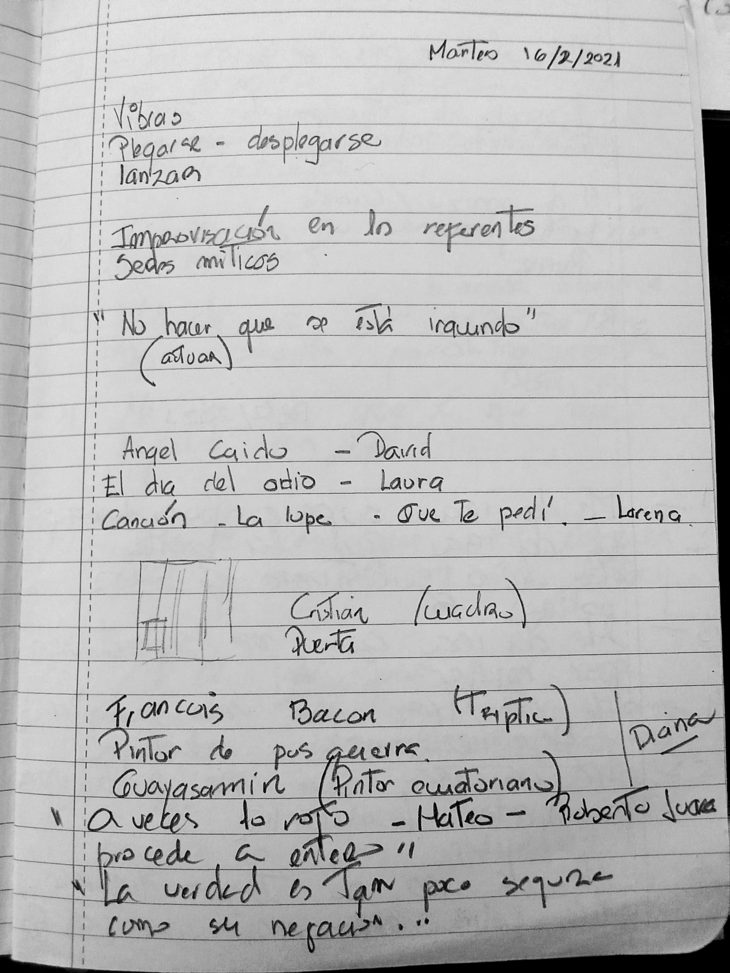 Martes 16/2/2021
Vibras
Plegarse - desplegarse
lanzar
Improvisación en los referentes
Sedes míticos
" No hacer que se está inquiriendo"
(actuar)
Angel Caido - David
El dia del odio - Laura
Canción - La lupe - Que Te pedí. - Lorena.
Cristian (cuadro)
Puerta
Francois Bacon (Triptic)
Pintor de pos guerra.
Diana
Guayasamin (Pintor ecuatoriano)
" A veces lo roto - Mateo - Roberto Juarr
procede a entero"
" La verdad es Tan poco segura
como su negación."